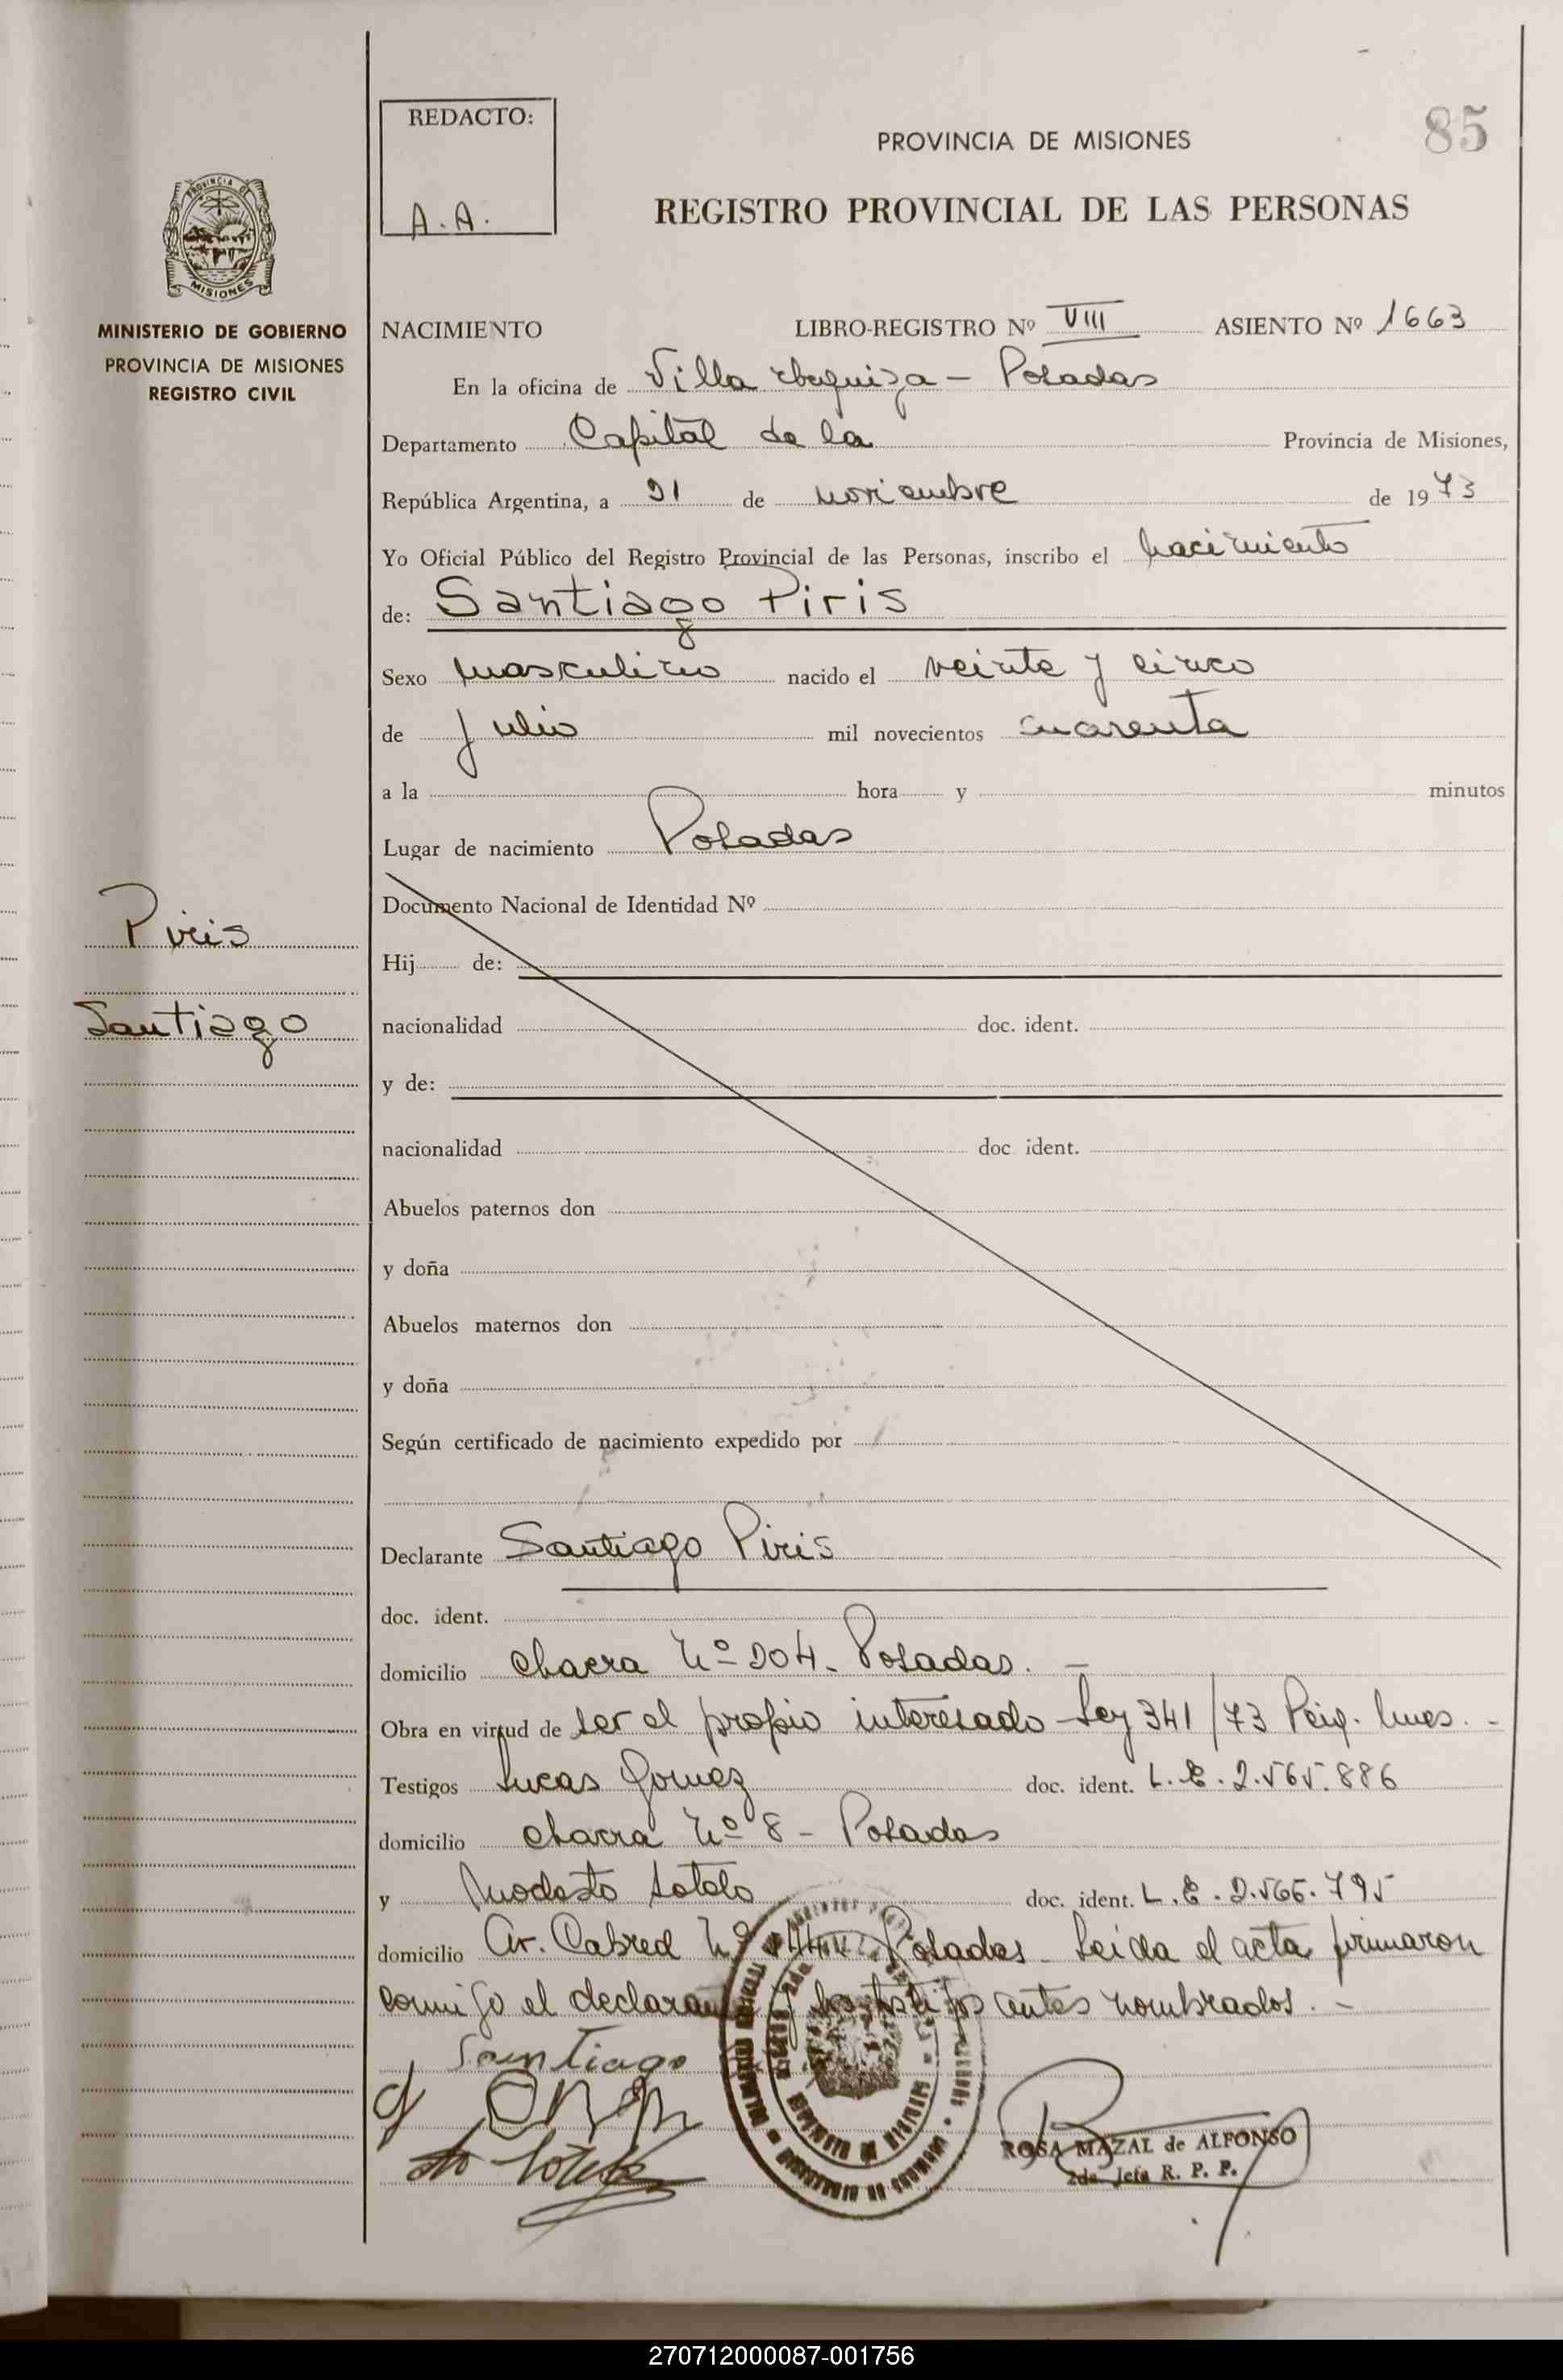 85
REDACTO:
A. A.
PROVINCIA DE MISIONES
REGISTRO PROVINCIAL DE LAS PERSONAS
PROVINCIA DE
MISIONES
MINISTERIO DE GOBIERNO
PROVINCIA DE MISIONES
REGISTRO CIVIL
Piris
Santiago
NACIMIENTO LIBRO-REGISTRO Nº VIII ASIENTO Nº 1663
En la oficina de Villa Urquiza - Posadas
Departamento Capital de la Provincia de Misiones,
República Argentina, a 21 de noviembre de 1973
Yo Oficial Público del Registro Provincial de las Personas, inscribo el nacimiento
de: Santiago Piris
Sexo masculino nacido el veinte y cinco
de Julio mil novecientos cuarenta
a la hora y minutos
Lugar de nacimiento Posadas
Documento Nacional de Identidad Nº
Hij de:
nacionalidad doc. ident.
y de:
nacionalidad doc ident.
Abuelos paternos don
y doña
Abuelos maternos don
y doña
Según certificado de nacimiento expedido por
Declarante Santiago Piris
doc. ident.
domicilio Chacra Nº 204. Posadas. -
Obra en virtud de ser el propio interesado - Ley 341/73
Testigos Lucas Gomez doc. ident. L. E. 2.565.886
domicilio Chacra Nº 8 - Posadas
y Modesto Sotelo doc. ident. L. E. 2.566.795
domicilio Av. Cabred Nº Posadas - Leida el acta firmaron
conmigo el declarante y los testigos antes nombrados. -
Santiago
ROSA MAZAL de ALFONSO
2da. Jefa R. P. P.
270712000087-001756